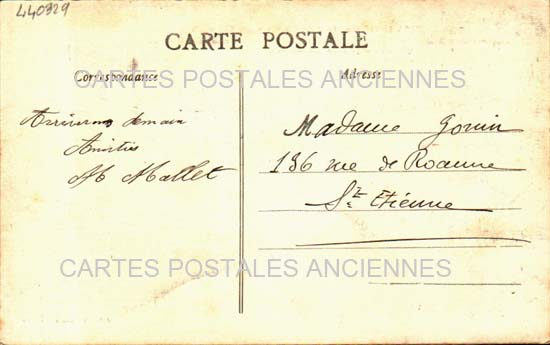 440329
CARTE POSTALE
Correspondance
Adresse
CARTES POSTALES ANCIENNES
Arriverons demain
Amitiés
M Mallet
Madame Gonin
136 rue de Roanne
St Etienne
CARTES POSTALES ANCIENNES